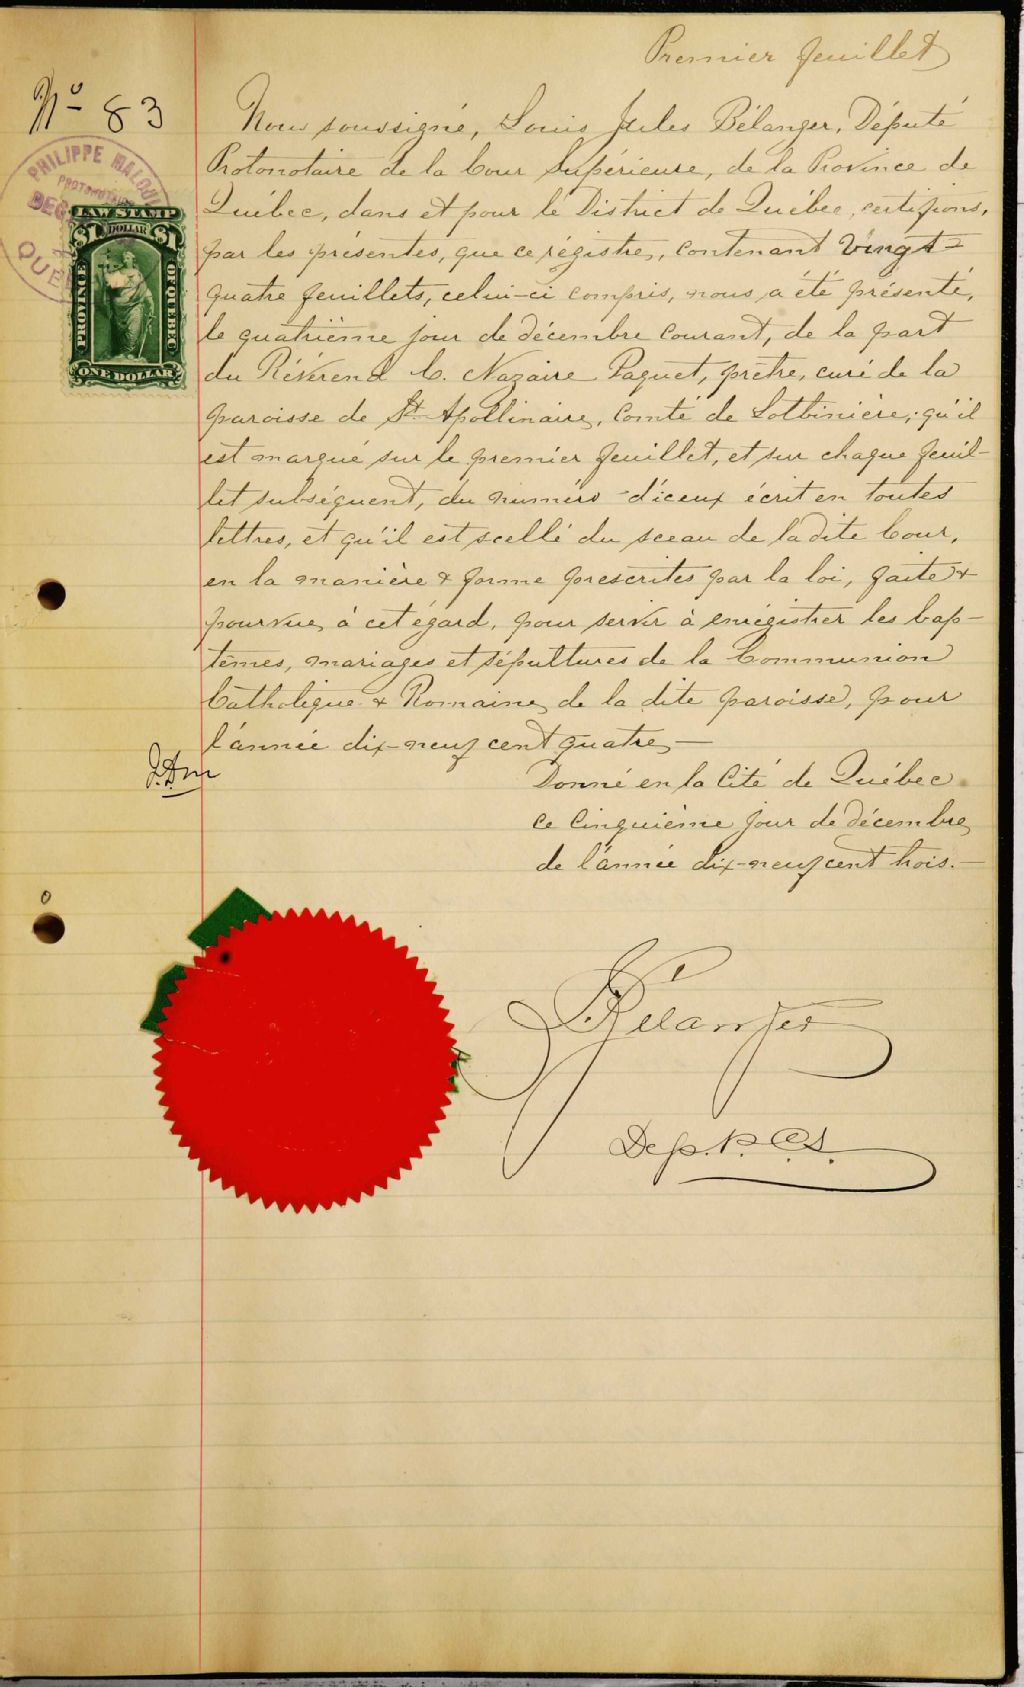 Premier feuillet
No 83
Nous soussigné, Louis Jules Bélanger, Député
Protonotaire de la Cour Supérieure, de la Province de
Québec, dans et pour le District de Québec, certifions,
par les présentes, que ce régistre, contenant vingt=
quatre feuillets, celui-ci compris, nous a été présenté,
le quatrième jour de décembre courant, de la part
du Révérend C. Nazaire Paquet, prêtre, curé de la
paroisse de St. Apollinaire, Comté de Lotbinière; qu'il
est marqué sur le premier feuillet, et sur chaque feuil-
let subséquent, du numéro d'iceux écrit en toutes
lettres, et qu'il est scellé du sceau de la dite Cour,
en la manière & forme prescrites par la loi, faite &
pourvue, à cet égard, pour servir à enrégistrer les bap-
têmes, mariages et sépultures de la Communion
Catholique & Romaine, de la dite paroisse, pour
l'année dix-neuf cent quatre,—
Donné en la Cité de Québec
ce cinquième jour de décembre,
de l'année dix-neuf cent trois.—
Bélanger
Dep. P.C.S.
PHILIPPE
PROTONOTAIRE
LAW STAMP
$1 DOLLAR $1
PROVINCE OF QUEBEC
ONE DOLLAR